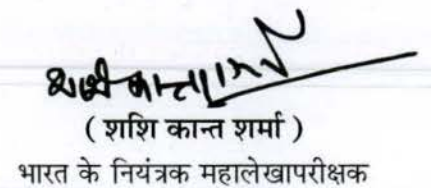 शशि कान्त शर्मा
( शशि कान्त शर्मा )
भारत के नियंत्रक महालेखापरीक्षक